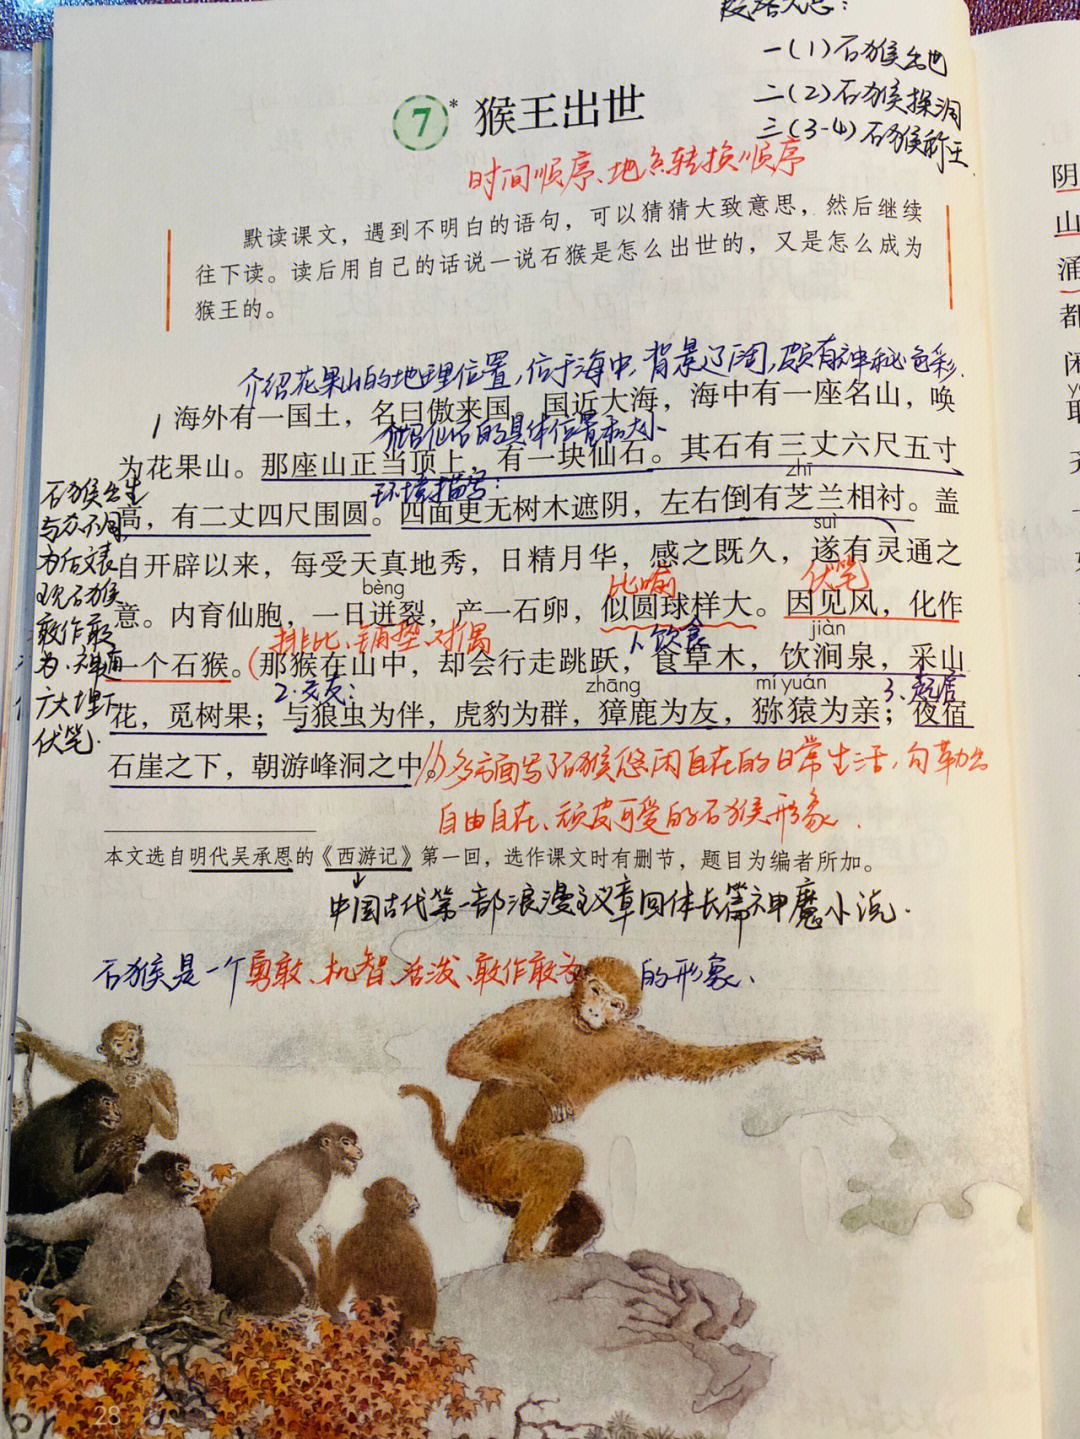 段落大意：
一(1)石猴出世
二(2)石猴探洞
三(3-4)石猴称王
7* 猴王出世
时间顺序、地点转换顺序
默读课文，遇到不明白的语句，可以猜猜大致意思，然后继续
往下读。读后用自己的话说一说石猴是怎么出世的，又是怎么成为
猴王的。
介绍花果山的地理位置，位于海中，背景辽阔，颇有神秘色彩.
1 海外有一国土，名曰傲来国。国近大海，海中有一座名山，唤
介绍仙石的具体位置和大小
为花果山。那座山正当顶上，有一块仙石。其石有三丈六尺五寸
环境描写：
zhī
高，有二丈四尺围圆。四面更无树木遮阴，左右倒有芝兰相衬。盖
suì
自开辟以来，每受天真地秀，日精月华，感之既久，遂有灵通之
bèng
比喻
伏笔
意。内育仙胞，一日迸裂，产一石卵，似圆球样大。因见风，化作
排比、铺垫、对偶
1、饮食
jiàn
一个石猴。(那猴在山中，却会行走跳跃，食草木，饮涧泉，采山
2、交友：
zhāng
mí yuán
3、起居
花，觅树果；与狼虫为伴，虎豹为群，獐鹿为友，猕猿为亲；夜宿
石崖之下，朝游峰洞之中。)
多方面写了石猴悠闲自在的日常生活，勾勒出
自由自在、顽皮可爱的石猴形象.
石猴出生
与众不同，
为后文表
现石猴
敢作敢
为、神通
广大埋下
伏笔.
本文选自明代吴承恩的《西游记》第一回，选作课文时有删节，题目为编者所加。
中国古代第一部浪漫主义章回体长篇神魔小说.
石猴是一个勇敢、机智、活泼、敢作敢为的形象、
28
阴
山
涌
都
闲